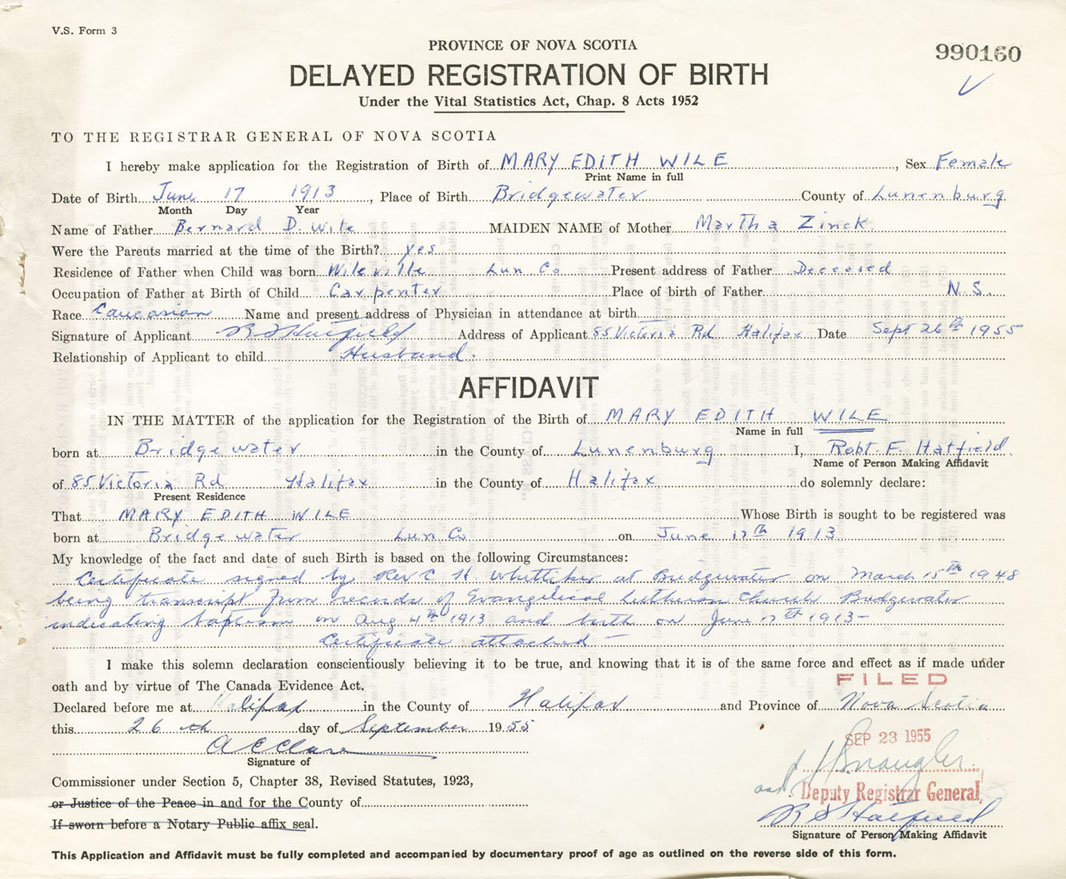 V.S. Form 3
PROVINCE OF NOVA SCOTIA
990160
DELAYED REGISTRATION OF BIRTH
Under the Vital Statistics Act, Chap. 8 Acts 1952
TO THE REGISTRAR GENERAL OF NOVA SCOTIA
I hereby make application for the Registration of Birth of MARY EDITH WILE, Sex Female
Print Name in full
Date of Birth June 17 1913, Place of Birth Bridgewater County of Lunenburg
Month Day Year
Name of Father Bernard D. Wile MAIDEN NAME of Mother Martha Zinck
Were the Parents married at the time of the Birth? yes
Residence of Father when Child was born Wileville Lun Co Present address of Father Deceased
Occupation of Father at Birth of Child Carpenter Place of birth of Father N.S.
Race Caucasian Name and present address of Physician in attendance at birth
Signature of Applicant Hatfield Address of Applicant 85 Victoria Rd Halifax Date Sept 26th 1955
Relationship of Applicant to child Husband.
AFFIDAVIT
IN THE MATTER of the application for the Registration of the Birth of MARY EDITH WILE
Name in full
born at Bridgewater in the County of Lunenburg I, Robt. F. Hatfield.
Name of Person Making Affidavit
of 85 Victoria Rd Halifax in the County of Halifax do solemnly declare:
Present Residence
That MARY EDITH WILE Whose Birth is sought to be registered was
born at Bridgewater Lun Co on June 17th 1913
My knowledge of the fact and date of such Birth is based on the following Circumstances:
Certificate signed by Rev C H Whittiker at Bridgewater on March 15th 1948
being transcript from records of Evangelical Lutheran Church Bridgewater
indicating baptism on Aug 4th 1913 and birth on June 17th 1913-
Certificate attached-
I make this solemn declaration conscientiously believing it to be true, and knowing that it is of the same force and effect as if made under
oath and by virtue of The Canada Evidence Act.
FILED
Declared before me at Halifax in the County of Halifax and Province of Nova Scotia
this 26 day of September 1955
SEP 23 1955
Signature of
Commissioner under Section 5, Chapter 38, Revised Statutes, 1923,
Deputy Registrar General
or Justice of the Peace in and for the County of
Hatfield
If sworn before a Notary Public affix seal.
Signature of Person Making Affidavit
This Application and Affidavit must be fully completed and accompanied by documentary proof of age as outlined on the reverse side of this form.